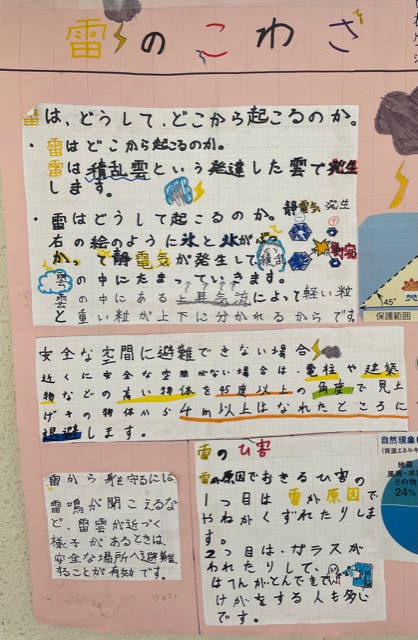 雷のこわさ
雷は、どうして、どこから起こるのか。
・雷はどこから起こるのか。
雷は積乱雲という発達した雲で発生
します。
・雷はどうして起こるのか。
静電気 発生
右の絵のように氷と氷がぶつ
かって静電気が発生して積乱
雲の中にたまっていきます。
雲の中にある上昇気流によって軽い粒
と重い粒が上下に分かれるからです。
45°
保護範囲
安全な空間に避難できない場合
近くに安全な空間がない場合は、電柱や建築
物などの高い物体を45度以上の角度で見上
げその物体から4m以上はなれたところに
退避します。
雷から身を守るには、
雷鳴が聞こえるな
ど、雷雲が近づく
様子があるときは、
安全な場所へ避難
することが有効です。
雷のひ害
雷が原因でおきるひ害の
1つ目は雷が原因で
やねがくずれたりしま
す。
2つ目は、ガラスが
われたりして、
はへんがとんできて、
けがをする人も多い
です。
自然現象
地震
風水
その他
24%